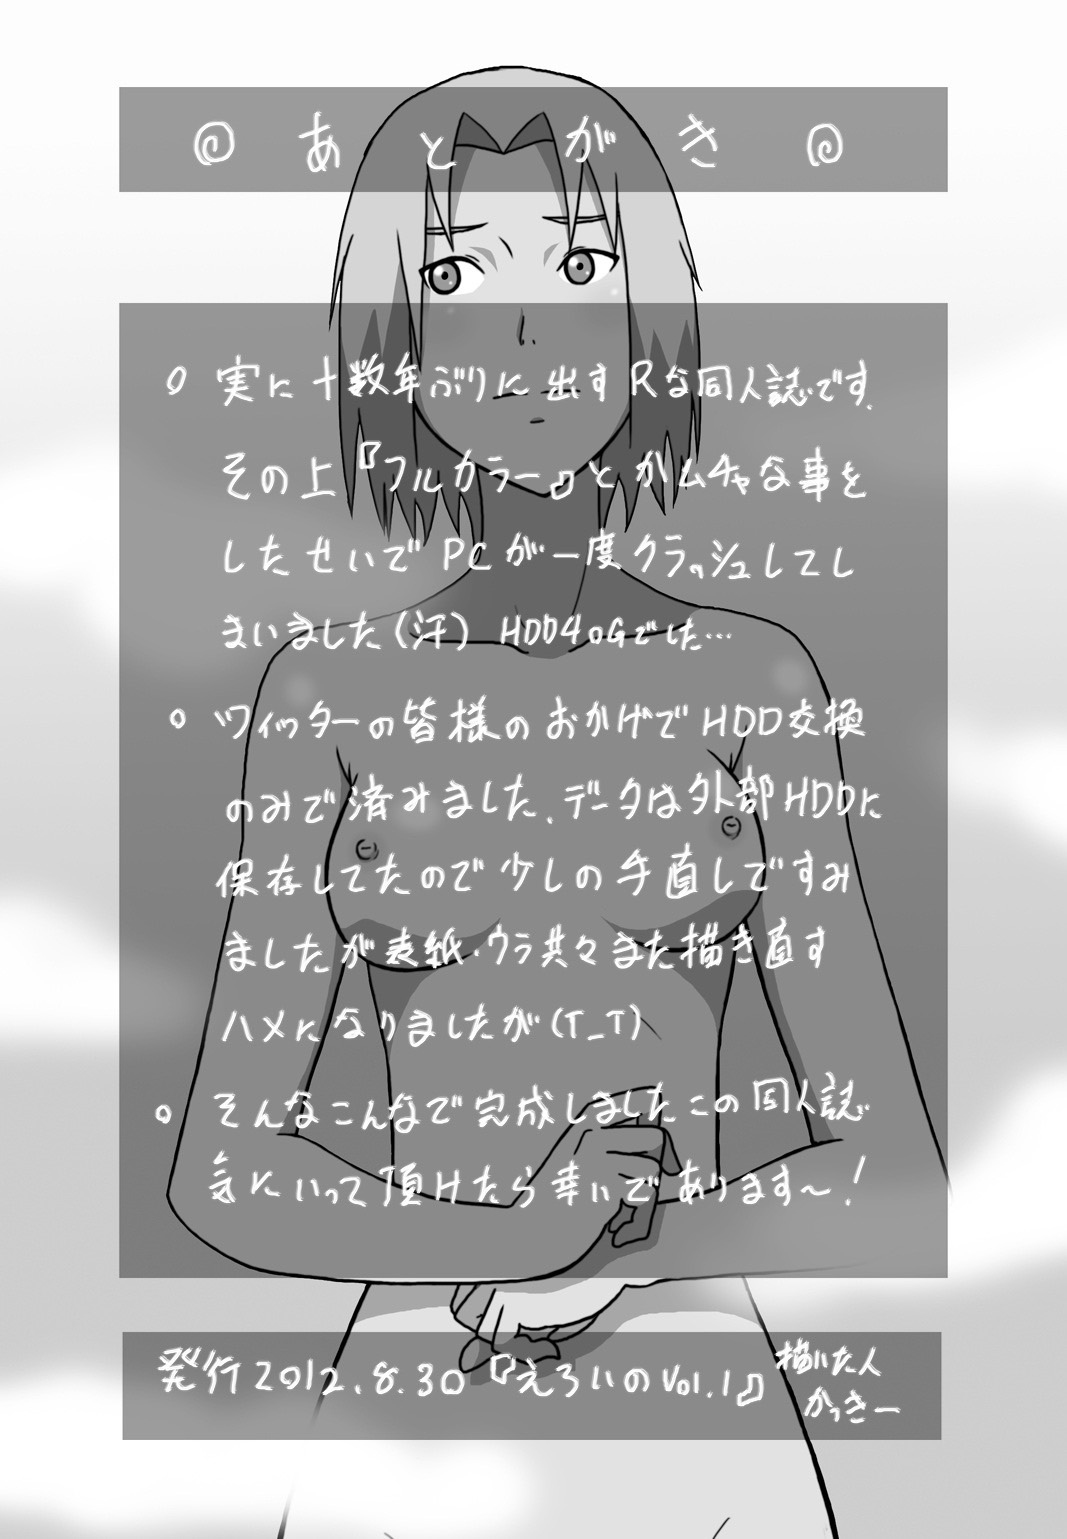 @あとがき@
○実に十数年ぶりに出すRな同人誌です.
その上『フルカラー』とかムチャな事を
したせいでPCが一度クラッシュしてし
まいました(汗) HDD40Gでした…
○ツイッターの皆様のおかげでHDD交換
のみで済みました.データは外部HDDに
保存してたので少しの手直しですみ
ましたが表紙・ウラ共々また描き直す
ハメになりましたが(T_T)
○そんなこんなで完成しましたこの同人誌
気にいって頂けたら幸いであります~!
発行2012.8.30『えろいのVol.1』
描いた人
かっきー